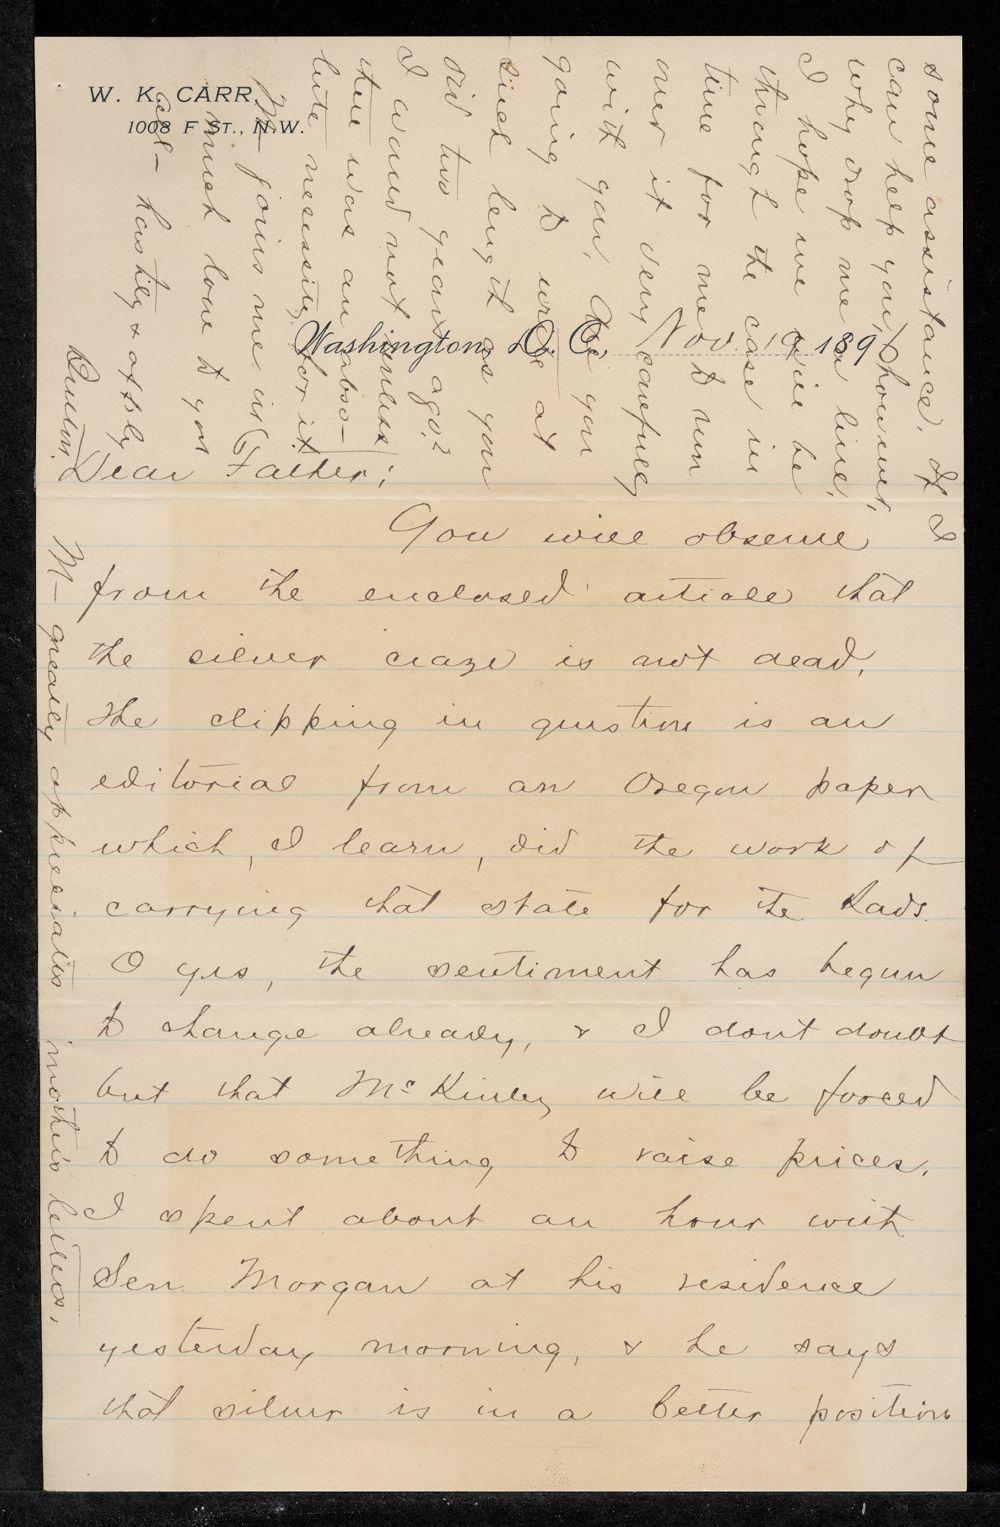 W. K. CARR.
1008 F ST., N.W.
Washington, D. C. Nov. 19 189
Dear Father:
You will observe
from the enclosed article that
the silver craze is not dead.
The clipping in question is an
editorial from an Oregon paper
which, I learn, did the work of
carrying that state for the Rads.
O yes, the sentiment has begun
to change already, & I dont doubt
but that McKinley will be forced
to do something to raise prices.
I spent about an hour with
Sen. Morgan at his residence
yesterday morning, & he says
that silver is in a better position
some assistance. If I
can help you, however,
why drop me a line.
I hope we will be
through the case in
time for me to run
over it very carefully
with you. Are you
going to write at
such length as you
did two years ago?
I would not unless
there was an abso-
lute necessity for it.
M— joins me in
much love to you
all— hastily & affly
M— greatly appreciates mother's letters.